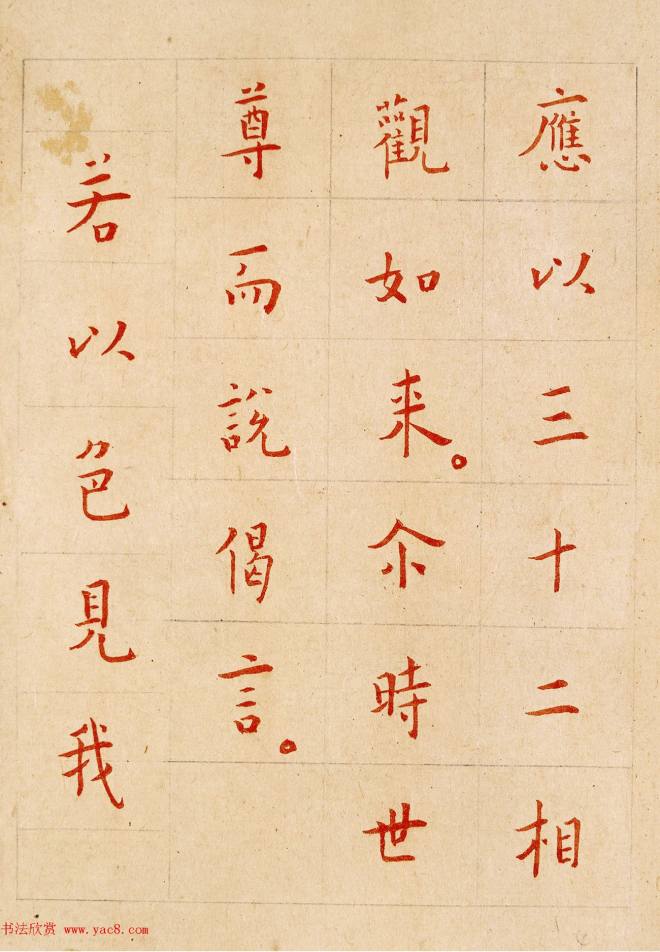 應以三十二相
觀如来。尒時世
尊而說偈言。
若以色見我
书法欣赏 www.yac8.com